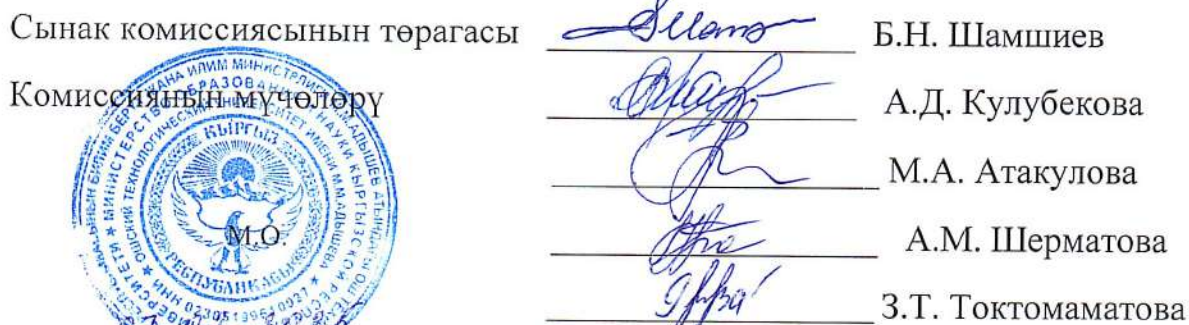 Сынак комиссиясынын төрагасы Б.Н. Шамшиев
Комиссиянын мүчөлөрү А.Д. Кулубекова
М.А. Атакулова
М.О. А.М. Шерматова
З.Т. Токтомаматова
КЫРГЫЗ
РЕСПУБЛИКАСЫ